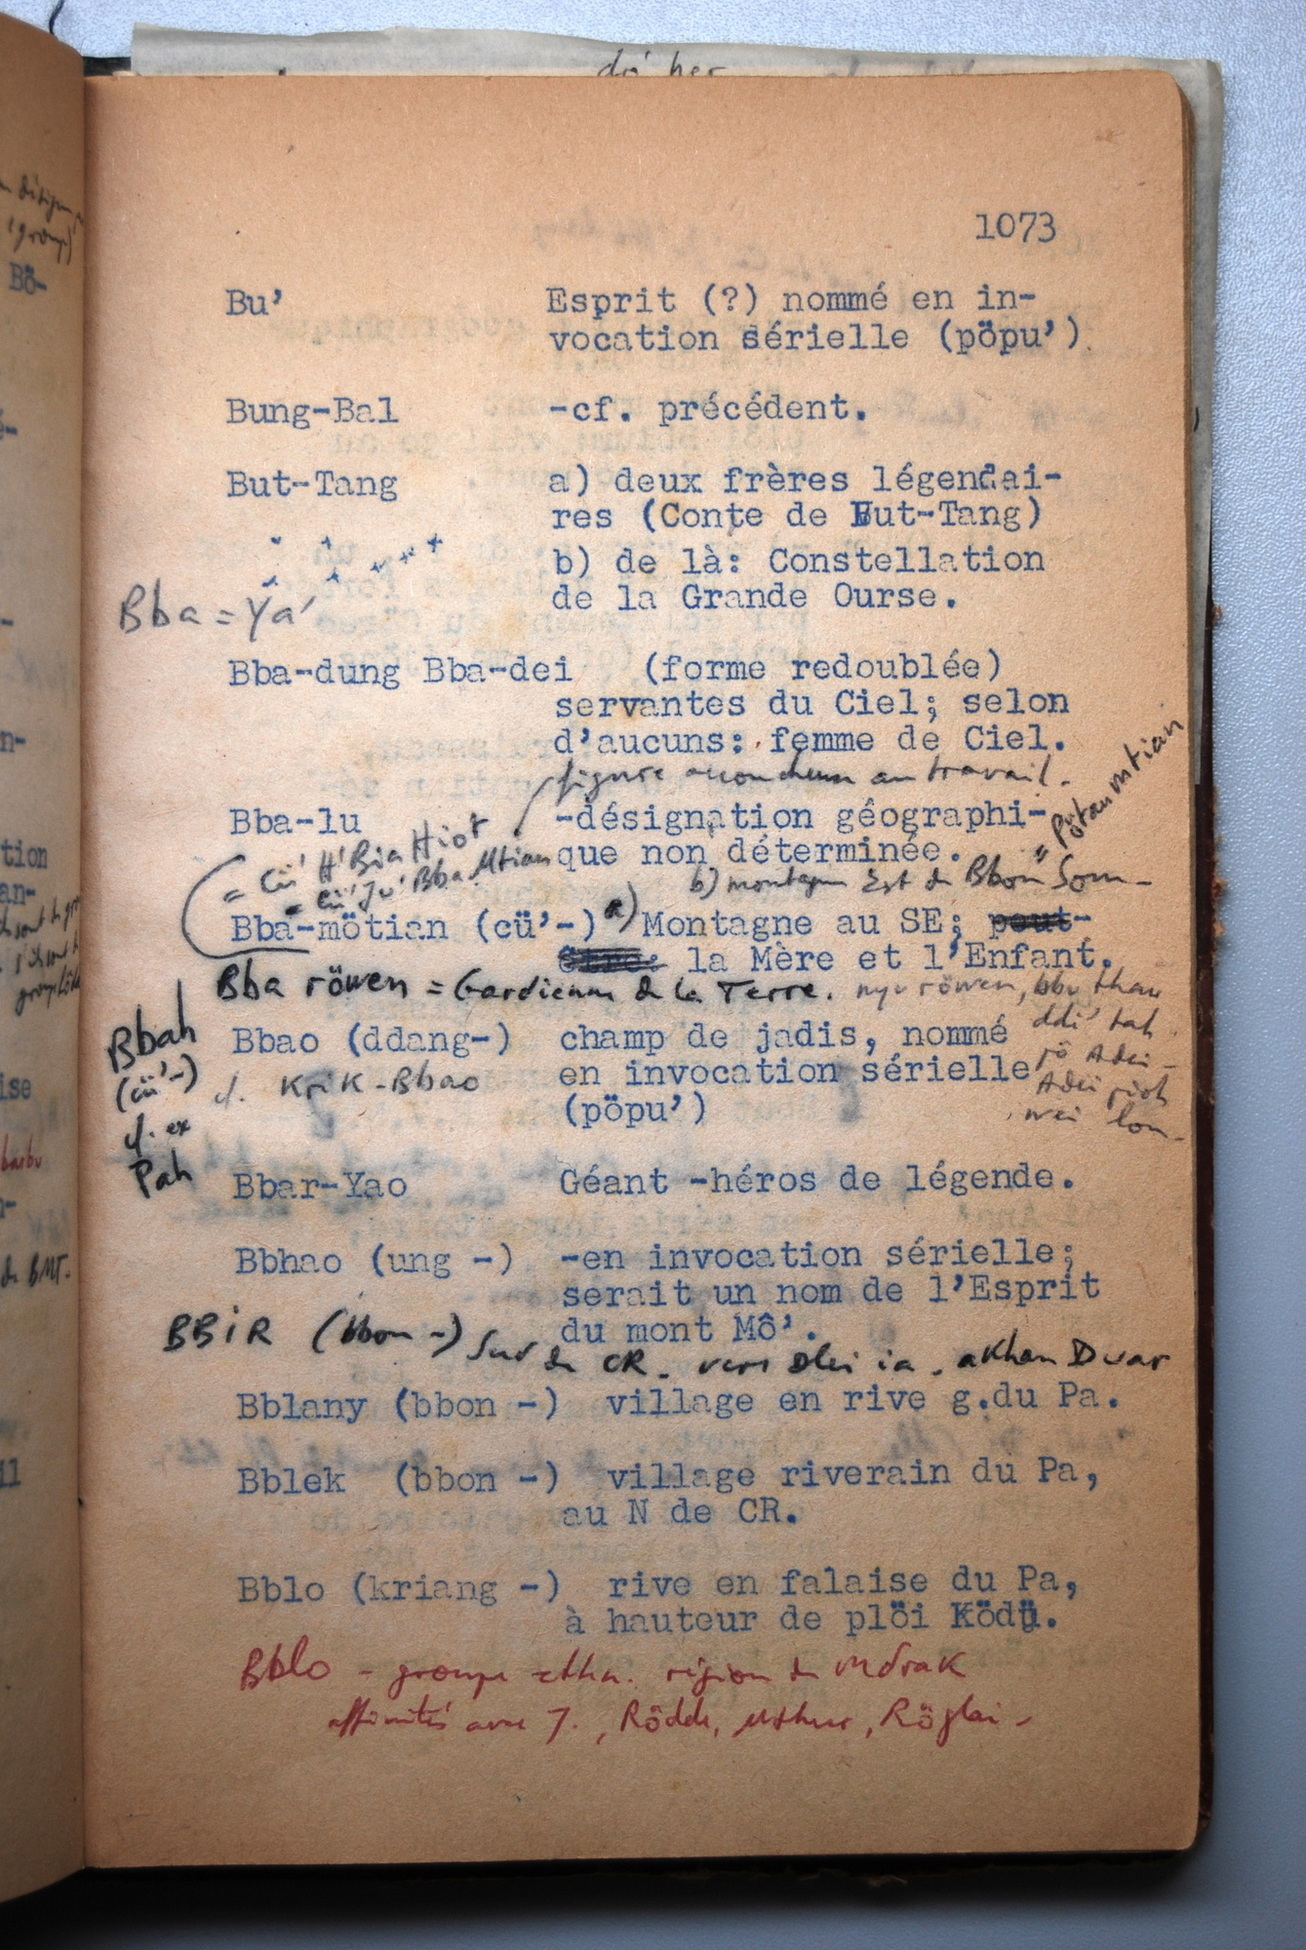 1073
Bu’ Esprit (?) nommé en in-
vocation sérielle (pöpu’)
Bung-Bal -cf. précédent.
But-Tang a) deux frères légendai-
res (Conte de But-Tang)
b) de là: Constellation
de la Grande Ourse.
Bba = Ya’
Bba-dung Bba-dei (forme redoublée)
servantes du Ciel; selon
d’aucuns: femme de Ciel.
figure au travail.
Bba-lu -désignation géographi-
que non déterminée.
= Cü’ H’Bia Hiot
= Cü’ Ju’ Bba Mtian
b) montagne Est de Bbon Som-
Bba-mötian (cü’-) a) Montagne au SE; peut-
être: la Mère et l’Enfant.
Bba röwen = Gardienne de la Terre.
Bbao (ddang-) champ de jadis, nommé
en invocation sérielle
(pöpu’)
cf. Krik-Bbao
Bbah
(cü’-)
cf. ex
Pah
Bbar-Yao Géant -héros de légende.
Bbhao (ung -) -en invocation sérielle;
serait un nom de l’Esprit
du mont Mô’.
BBIR (bbon -) Sud de CR. vers Dlei ia, akhan Duar
Bblany (bbon -) village en rive g.du Pa.
Bblek (bbon -) village riverain du Pa,
au N de CR.
Bblo (kriang -) rive en falaise du Pa,
à hauteur de plöi Ködü.
Bblo - groupe ethn. région de Mdrak
affinités avec J., Rödde, Mthur, Röglai -